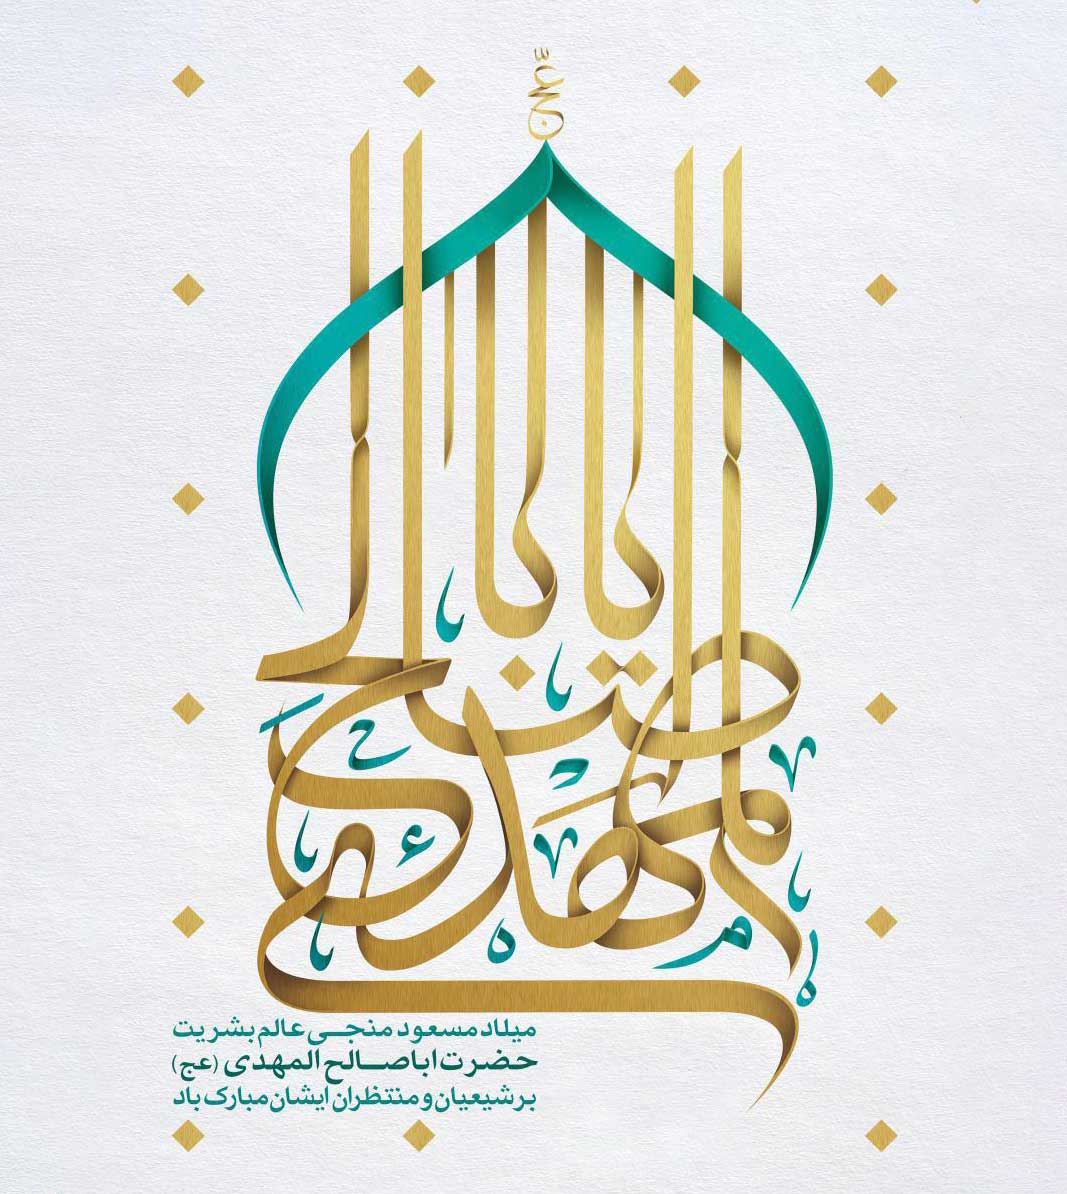 عج
یا اباصالح المهدی
میلاد مسعود منجی عالم بشریت
حضرت اباصالح المهدی (عج)
بر شیعیان و منتظران ایشان مبارک باد